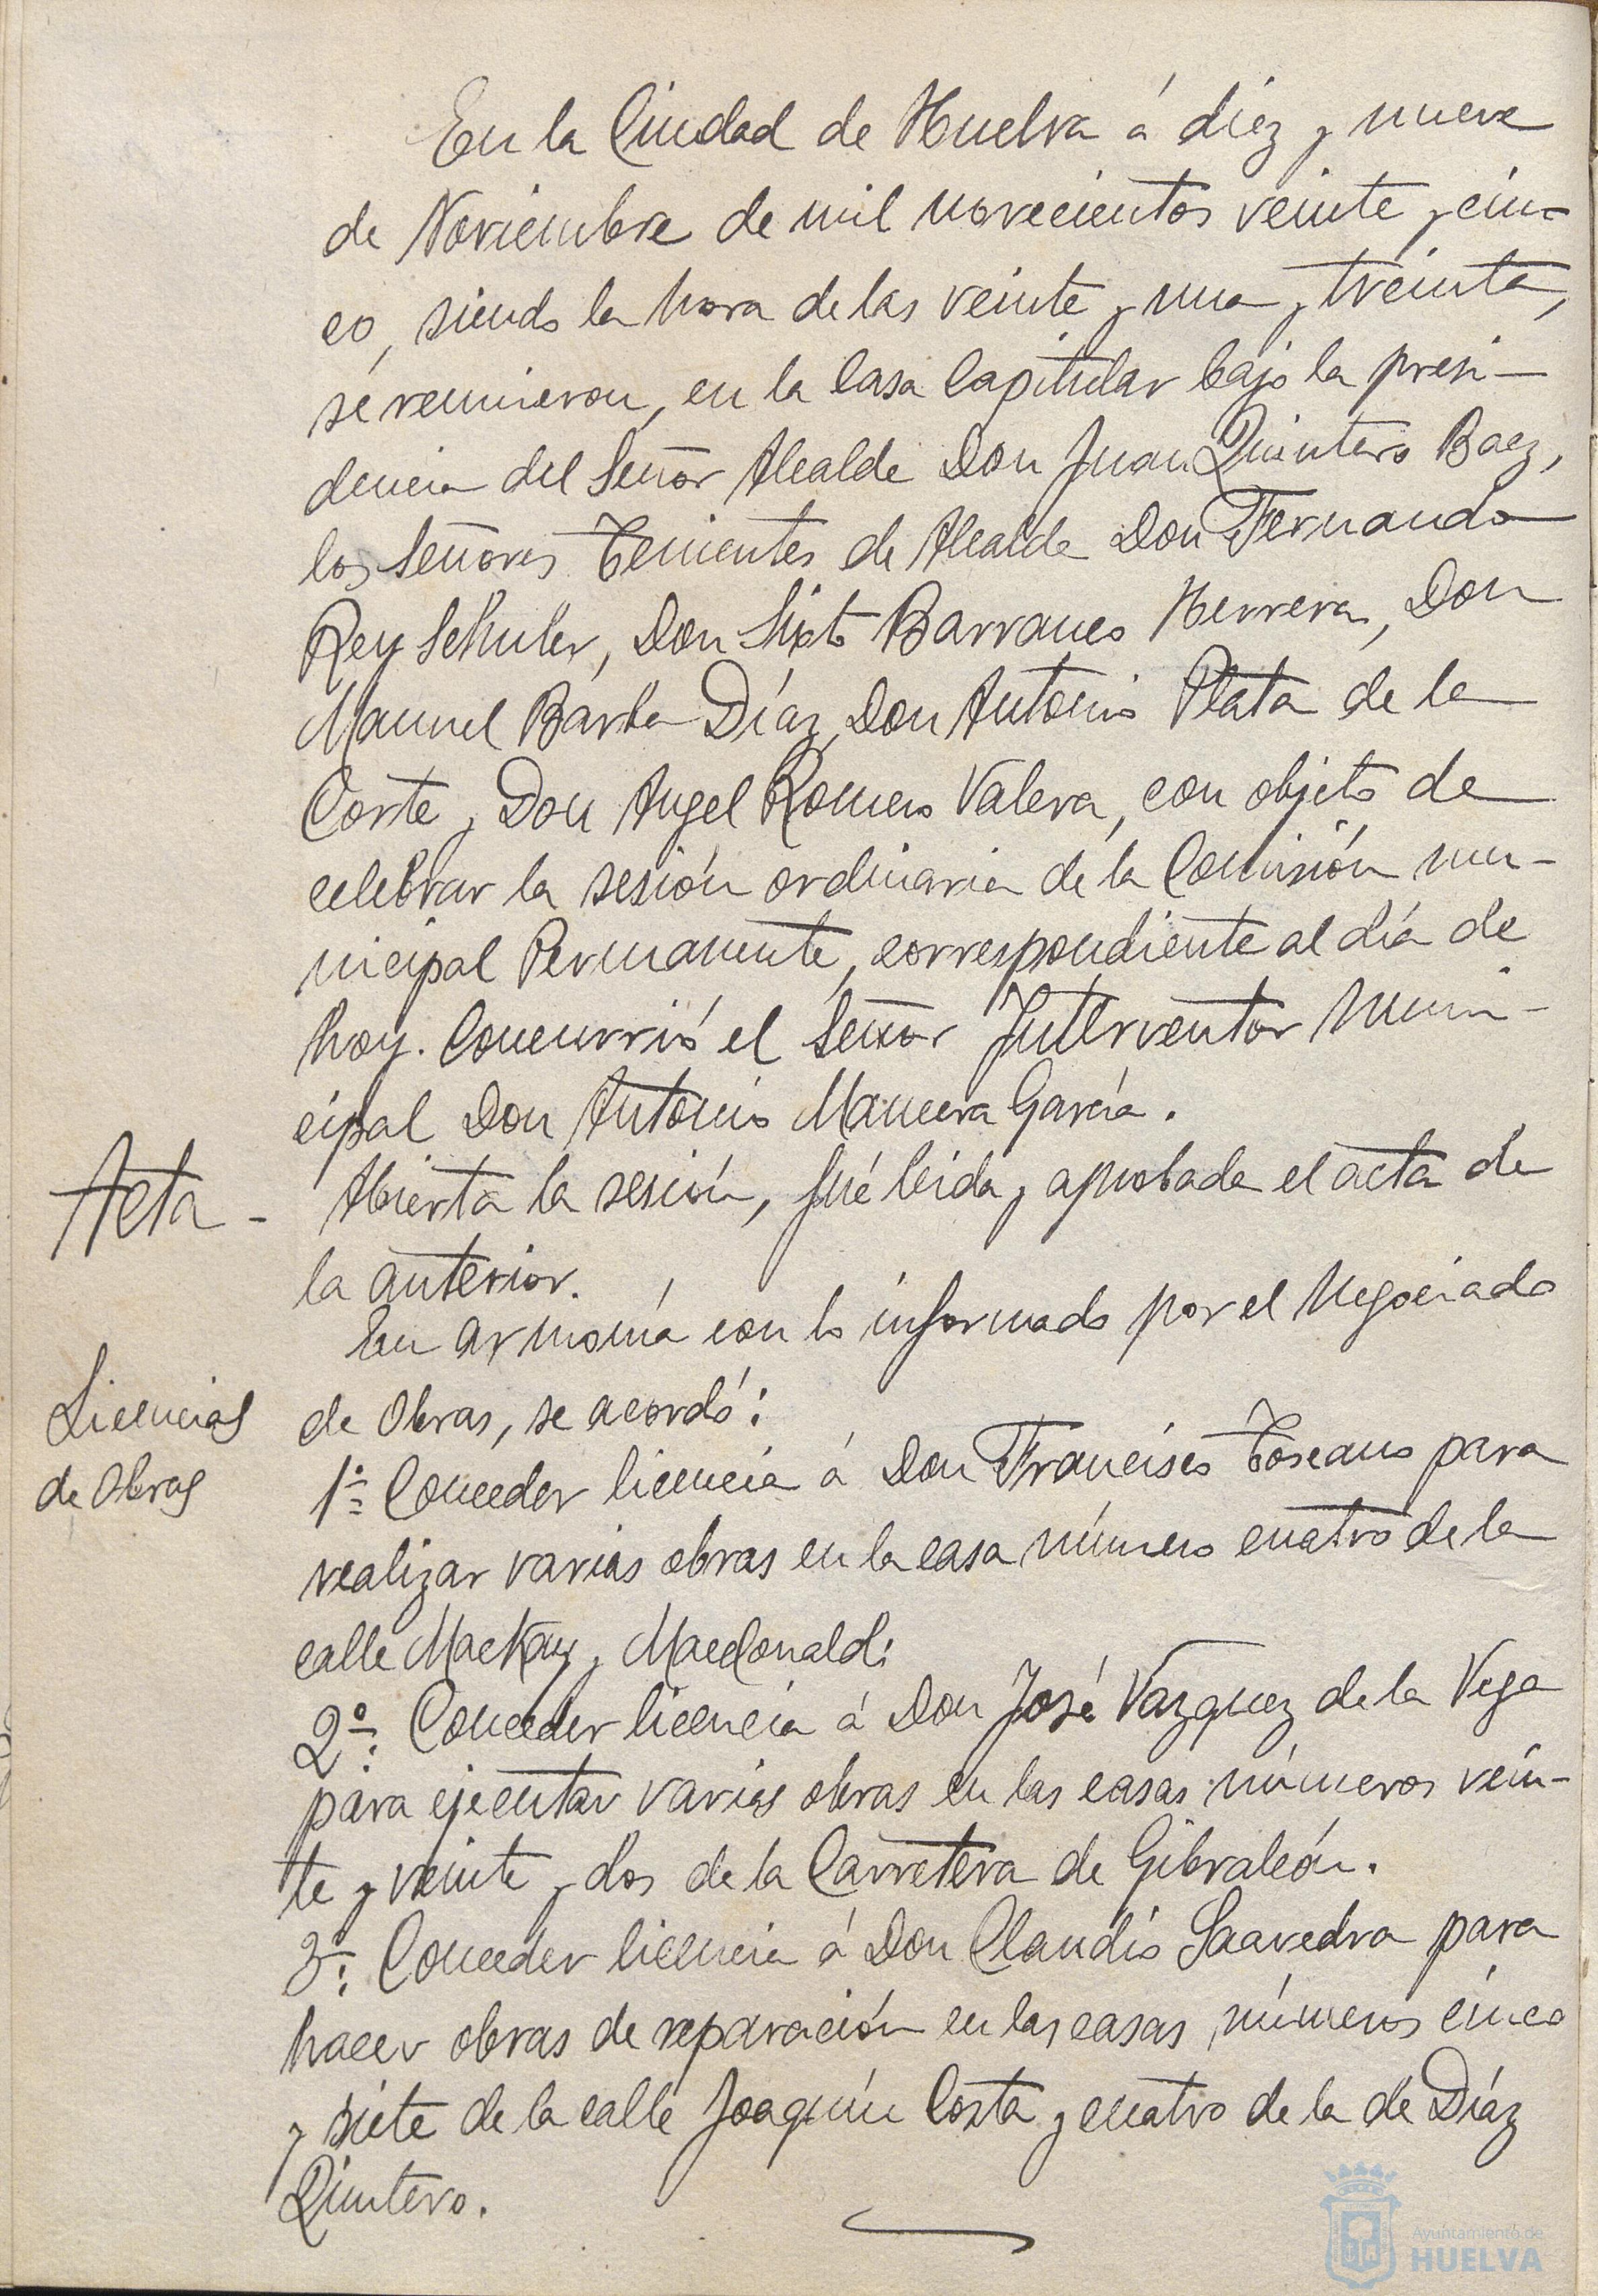 En la Ciudad de Huelva á diez y nueve
de Noviembre de mil novecientos veinte y cin-
co, siendo la hora de las veinte y una y treinta,
se reunieron, en la Casa Capitular bajo la presi-
dencia del Señor Alcalde Don Juan Quintero Baez,
los Señores Tenientes de Alcalde Don Fernando
Rey Schuler, Don Sixto Barranco Herrera, Don
Manuel Barba Díaz, Don Antonio Plata de la
Corte y Don Angel Romero Valera, con objeto de
celebrar la sesión ordinaria de la Comisión mu-
nicipal Permanente, correspondiente al día de
hoy. Concurrió el Señor Interventor Muni-
cipal Don Antonio Mancera García.
Acta -
Abierta la sesión, fué leida y aprobada el acta de
la anterior.
En armonía con lo informado por el Negociado
Licencias
de Obras, se acordó:
de Obras
1º Conceder licencia á Don Francisco Toscano para
realizar varias obras en la casa número cuatro de la
calle Mackay y Macdonald:
2º: Conceder licencia á Don José Vazquez de la Vega
para ejecutar varias obras en las casas números vein-
te y veinte y dos de la Carretera de Gibraleón.
3º: Conceder licencia á Don Claudio Saavedra para
hacer obras de reparación en las casas, números cinco
y siete de la calle Joaquín Costa y cuatro de la de Díaz
Quintero.
Ayuntamiento de
HUELVA